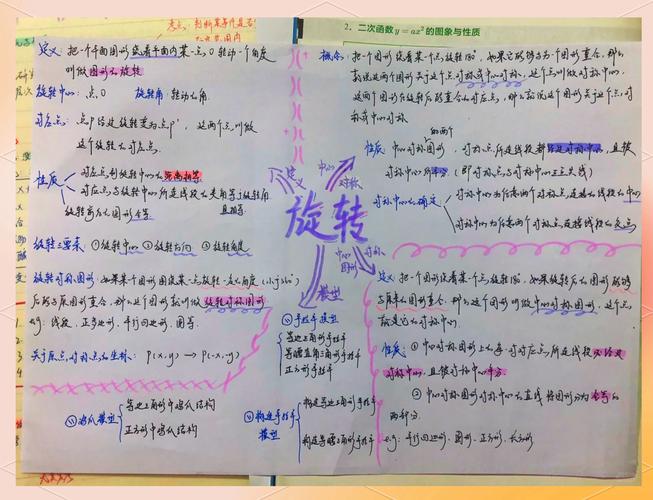 2. 二次函数 y = ax² 的图象与性质
定义: 把一个平面图形绕着平面内某一点O转动一个角度
叫做图形的旋转
旋转中心: 点O 旋转角: 转动的角
对应点: 点P经过旋转变为点P', 这两个点叫做
这个旋转的对应点.
性质
对应点到旋转中心的距离相等
对应点与旋转中心所连线段的夹角等于旋转角
且相等
旋转前后的图形全等
旋转三要素 ①旋转中心 ②旋转方向 ③旋转角度
旋转对称图形: 如果某个图形围绕某一点旋转一定的角度(小于360°)
后能与原图形重合, 那么这个图形就叫做旋转对称图形
eg: 线段, 正多边形, 平行四边形, 圆等.
关于原点对称点的坐标: P(x,y) → P(-x,-y)
(1) 鸡爪模型
等边三角形中鸡爪结构
正方形中鸡爪结构
旋转
定义
中心
对称
中心
对称
图形
模型
(1) 手拉手模型
等边三角形手拉手
等腰直角三角形手拉手
正方形手拉手
构造手拉手
模型
构造等边三角形手拉手
构造等腰三角形手拉手
概念: 把一个图形绕着某一个点旋转180°, 如果它能够与另一个图形重合, 那么
就说这两个图形关于这个点对称或中心对称, 这个点叫做对称中心,
这两个图形在旋转后能重合的对应点, 那么就说这个图形关于这个点对
称或中心对称
的两个
性质: 中心对称图形, 对称点所连线段都经过对称中心, 且被
对称中心所平分 (即对称点与对称中心三点共线)
对称中心的确定
对称中心为任意两个对称点连接的线段的中心
对称中心为任意两个对称点连接线段的交点
定义: 把一个图形绕着某一个点旋转180°, 如果旋转后的图形能够
与原来的图形重合, 那么这个图形叫做中心对称图形, 这个点
就是它的对称中心.
性质: ① 中心对称图形上的每一对对应点所连线段必经过
对称中心, 且被对称中心平分.
② 中心对称图形对称中心的直线将图形分为全等的
两部分.
eg: 平行四边形, 圆形, 正方形, 长方形